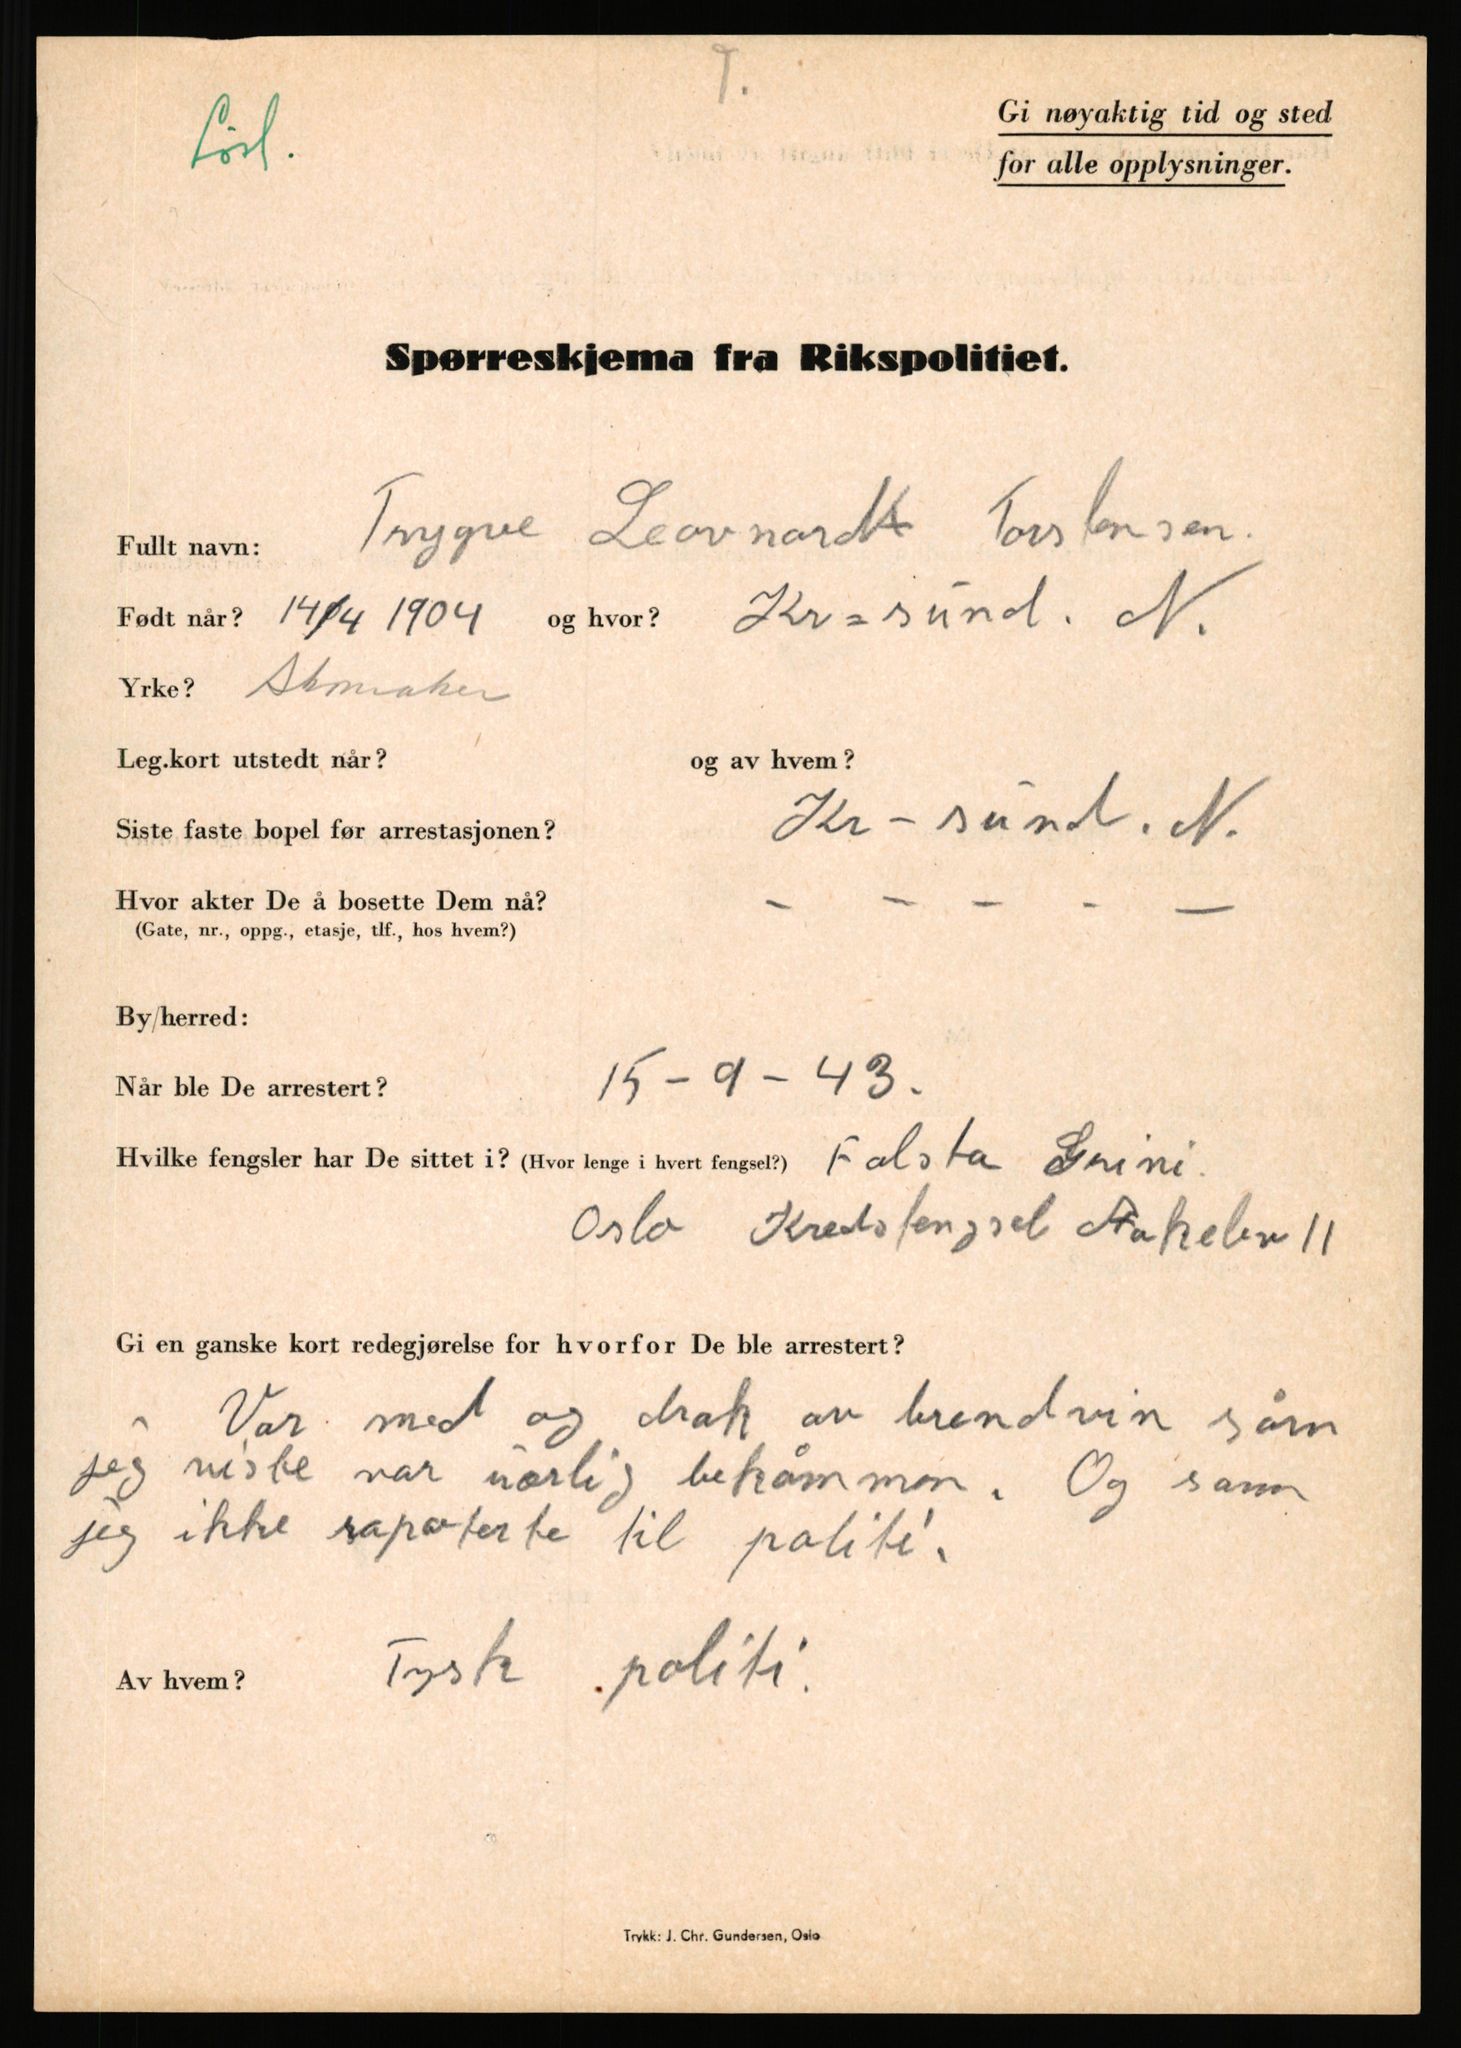 T.
Lösl.
Gi nøyaktig tid og sted
for alle opplysninger.
Spørreskjema fra Rikspolitiet.
Fullt navn: Trygve Leovnardt Torstensen.
Født når? 14/4 1904 og hvor? Kr=sund. N.
Yrke? Skomaker
Leg.kort utstedt når? og av hvem?
Siste faste bopel før arrestasjonen? Kr - sund. N.
Hvor akter De å bosette Dem nå? - - - - -
(Gate, nr., oppg., etasje, tlf., hos hvem?)
By/herred:
Når ble De arrestert? 15-9-43.
Hvilke fengsler har De sittet i? (Hvor lenge i hvert fengsel?) Falsta Grini.
Oslo Kredsfengsel 11
Gi en ganske kort redegjørelse for hvorfor De ble arrestert?
Var med og drak av brendvin såm
jeg viste var uærlig bekåmmen. Og såm
jeg ikke rapoterte til politi.
Av hvem? Tysk politi.
Trykk: J. Chr. Gundersen, Oslo